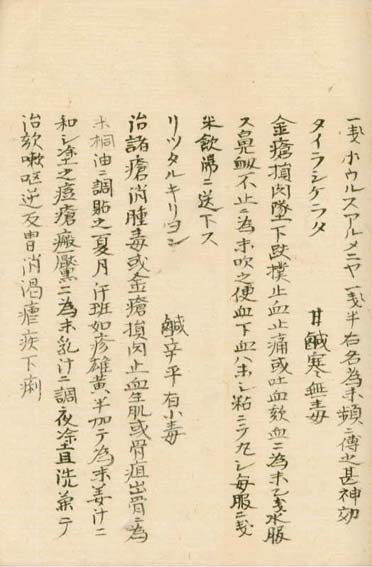 一戔ホウルスアルメニヤ一戔半右名為末頻ニ傅之甚神効
タイラシケラタ　甘鹹寒無毒
金瘡損肉墜下跌撲止血止痛或吐血欬血ニ為末乙戔水服
ス鼻衄不止ニ為末吹之便血下血ハ末シ粘ニテ丸シ毎服二戔
米飲湯ニ送下ス
リツタルキリヨン　鹹辛平有小毒
治諸瘡消腫毒或金瘡損肉止血生肌或骨疽出骨ニ為
末桐油ニ調貼之夏月汗班如疹雄黄半加テ為末姜汁ニ
和シ塗之痘瘡癜黶ニ為末乳汁ニ調夜塗且洗兼テ
治欬嗽嘔逆反胃消渇瘧疾下痢